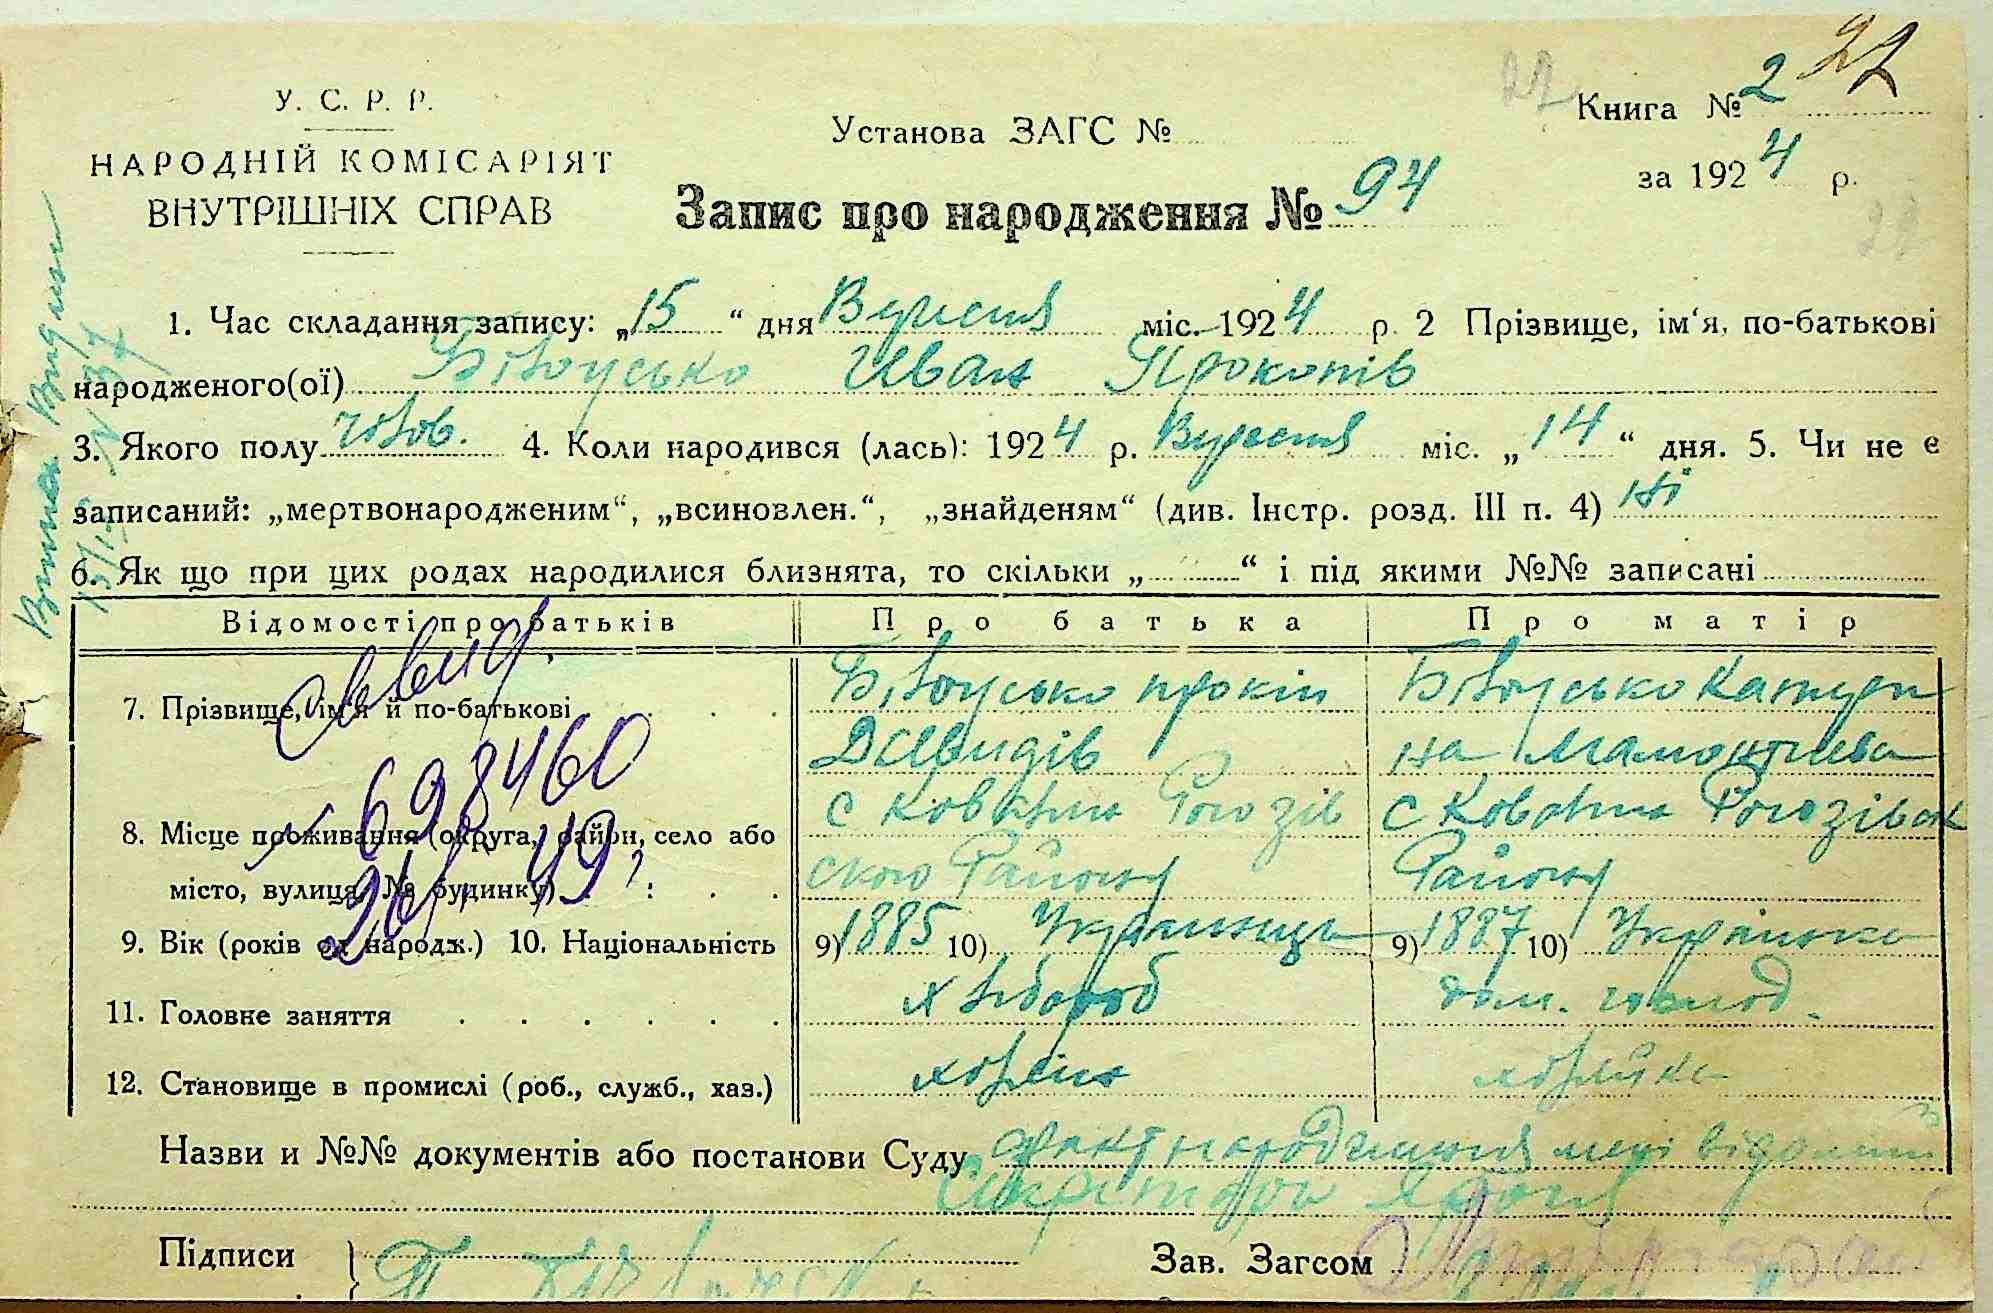 22
22
У. С. Р. Р.
НАРОДНІЙ КОМІСАРІЯТ
ВНУТРІШНІХ СПРАВ
Установа ЗАГС №
Книга № 2
за 1924 р.
22
Запис про народження № 94
1. Час складання запису: „15“ дня Вересня міс. 1924 р. 2 Прізвище, ім‘я, по-батькові
народженого(ої) Білоусько Иван Прокопів
3. Якого полу чолов. 4. Коли народився (лась): 1924 р. Вересня міс. „14“ дня. 5. Чи не є
записаний: „мертвонародженим“, „всиновлен.“, „знайденям“ (див. Інстр. розд. III п. 4) ні
6. Як що при цих родах народилися близнята, то скільки „ “ і під якими №№ записані
Відомості про батьків Про батька Про матір
7. Прізвище, ім‘я й по-батькові
Білоусько Прокіп
Давидів
Білоусько Катери
на Мамонтиева
8. Місце проживання (округа, район, село або
місто, вулиця, № будинку)
с Ковалин Рогозів
ского Району
с Ковалин Рогозівск
Району
9. Вік (років од народж.) 10. Національність 9) 1885 10) Украинець 9) 1887 10) Українка
11. Головне заняття хлібороб дом. господ.
12. Становище в промислі (роб., служб., хаз.) хозяин хозяйка
Назви и №№ документів або постанови Суду факт народження мені відомий
Секретарь
Підписи
Зав. Загсом
698460
49